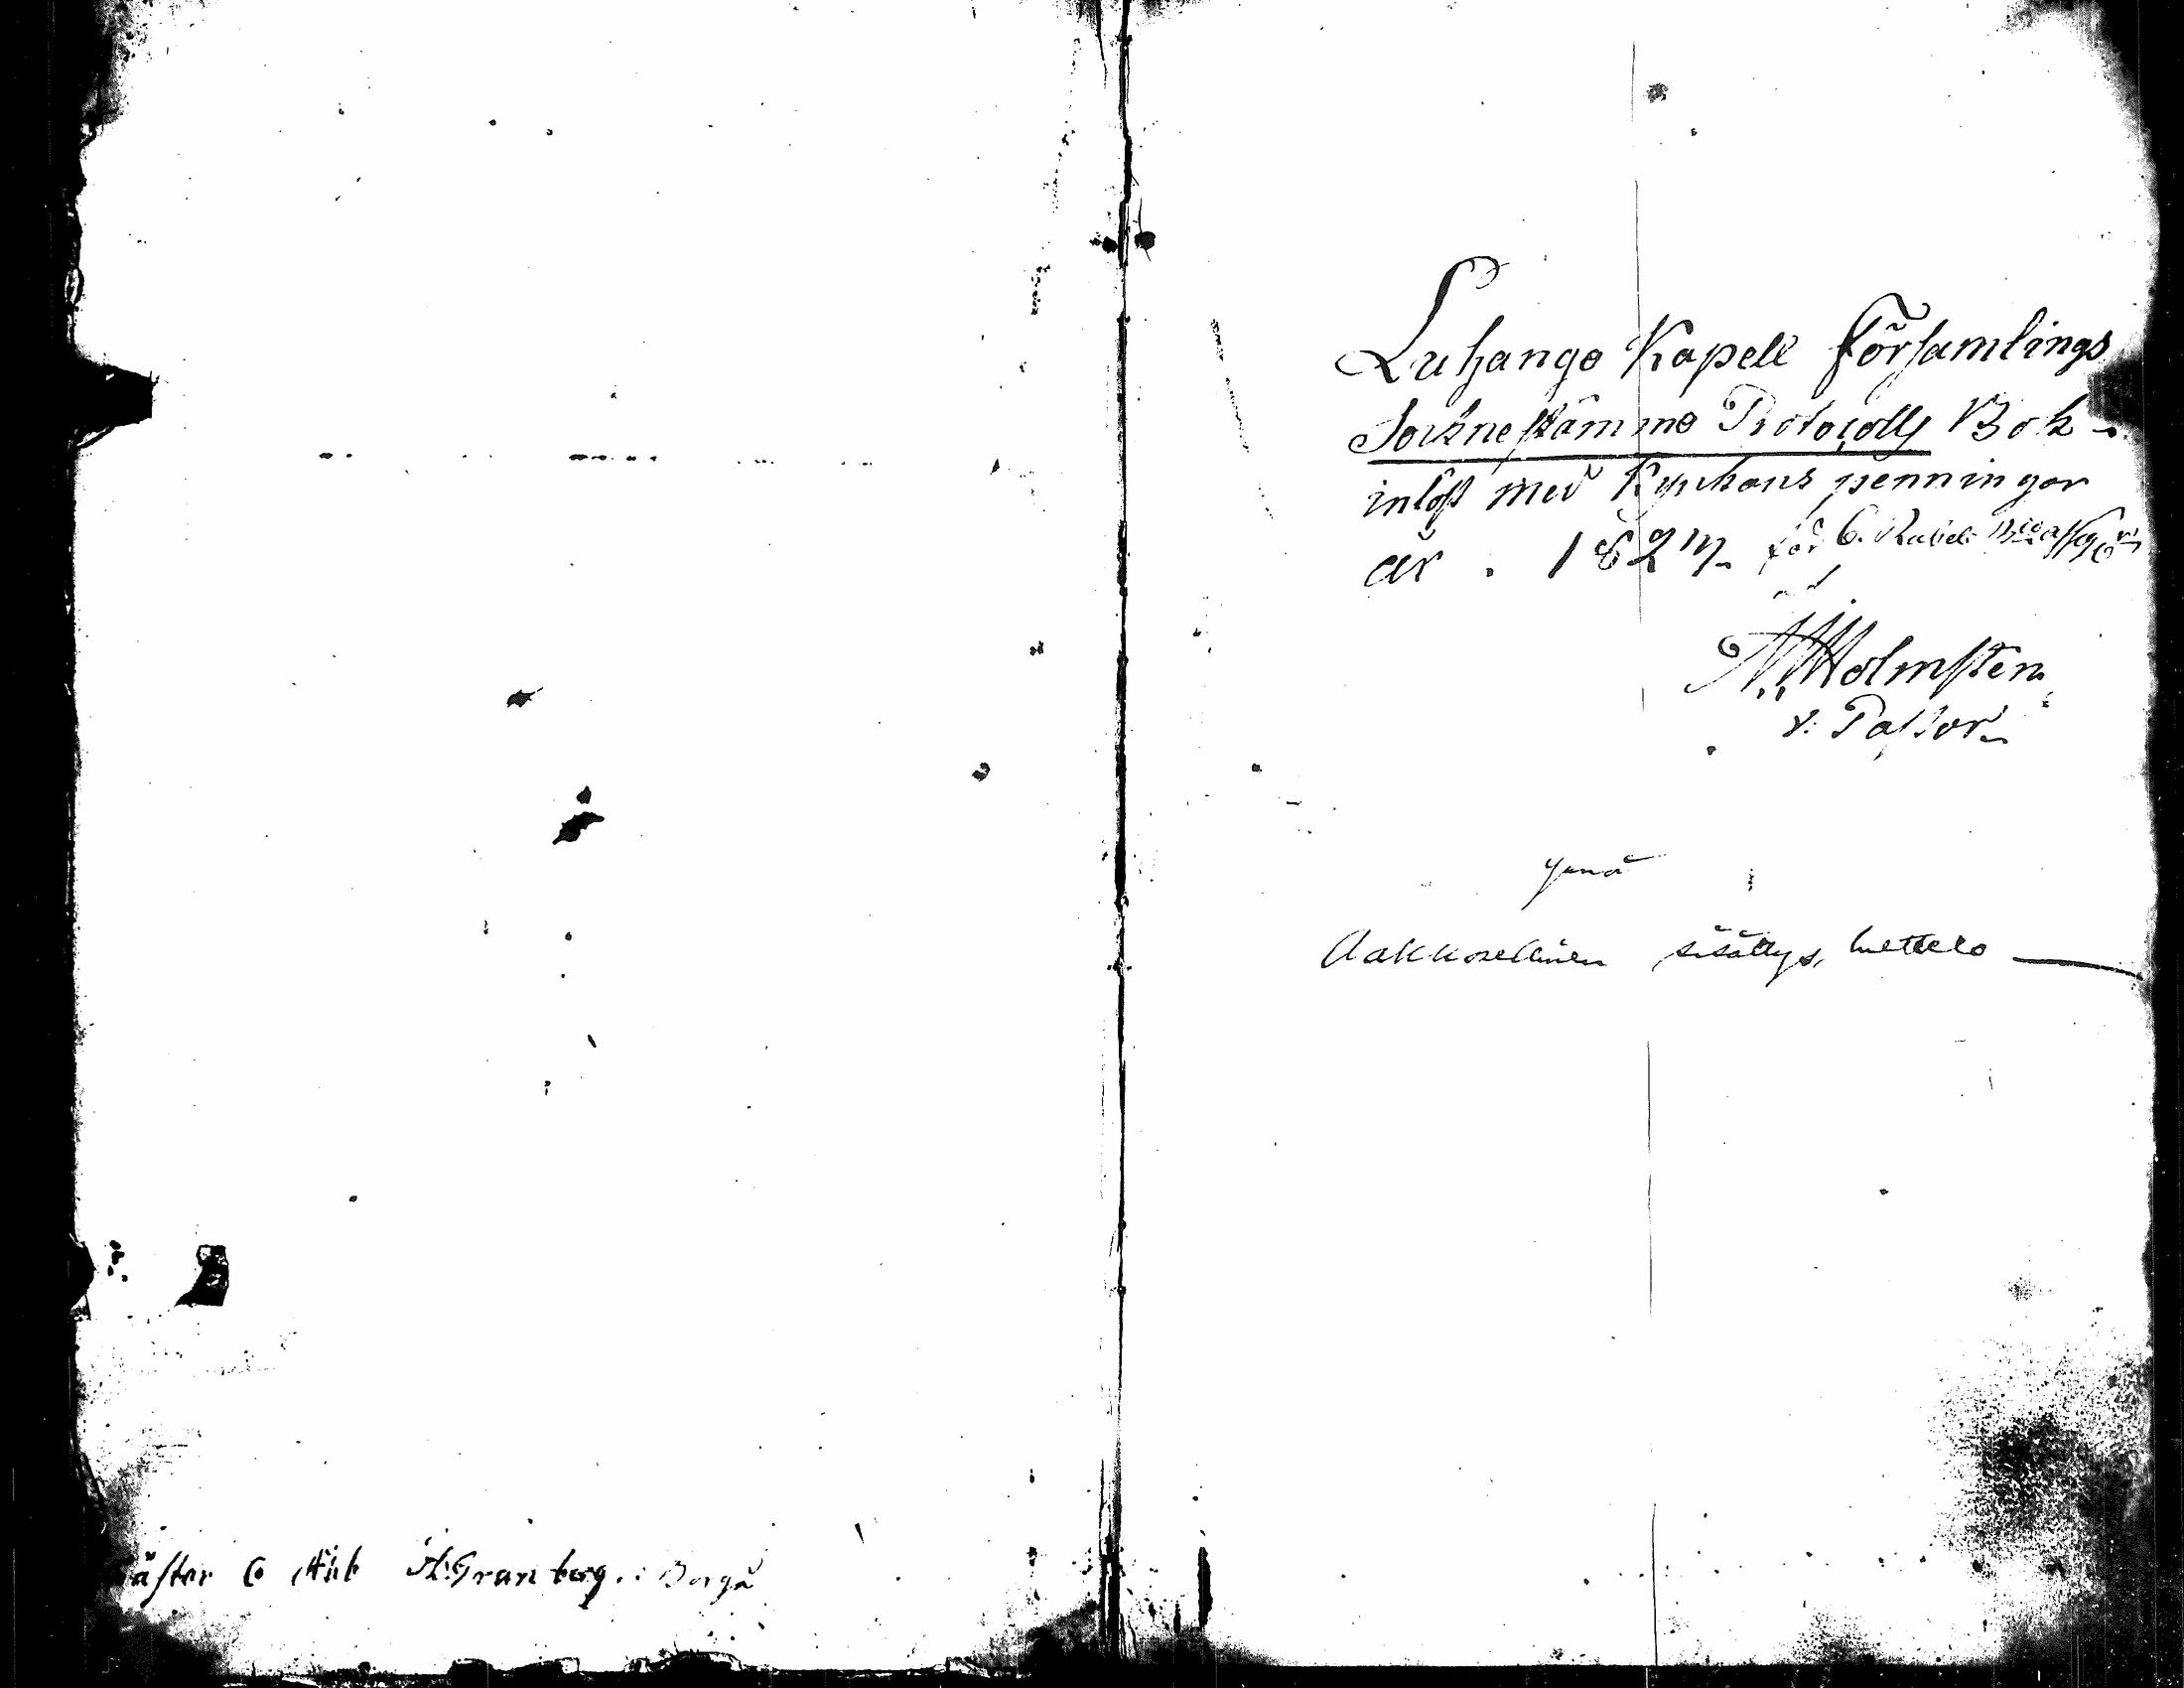 Luhango Kapell Församlings
Socknestämmo Protocolls Bok
inlöst med Kyrkans penningar
år. 1827. för 6. Rubel B:co Assign:r
Holmsten
v. Pastor
ynnä
Aakkosellinen sisällys, luettelo
äfter 6 Granberg. i Borgå